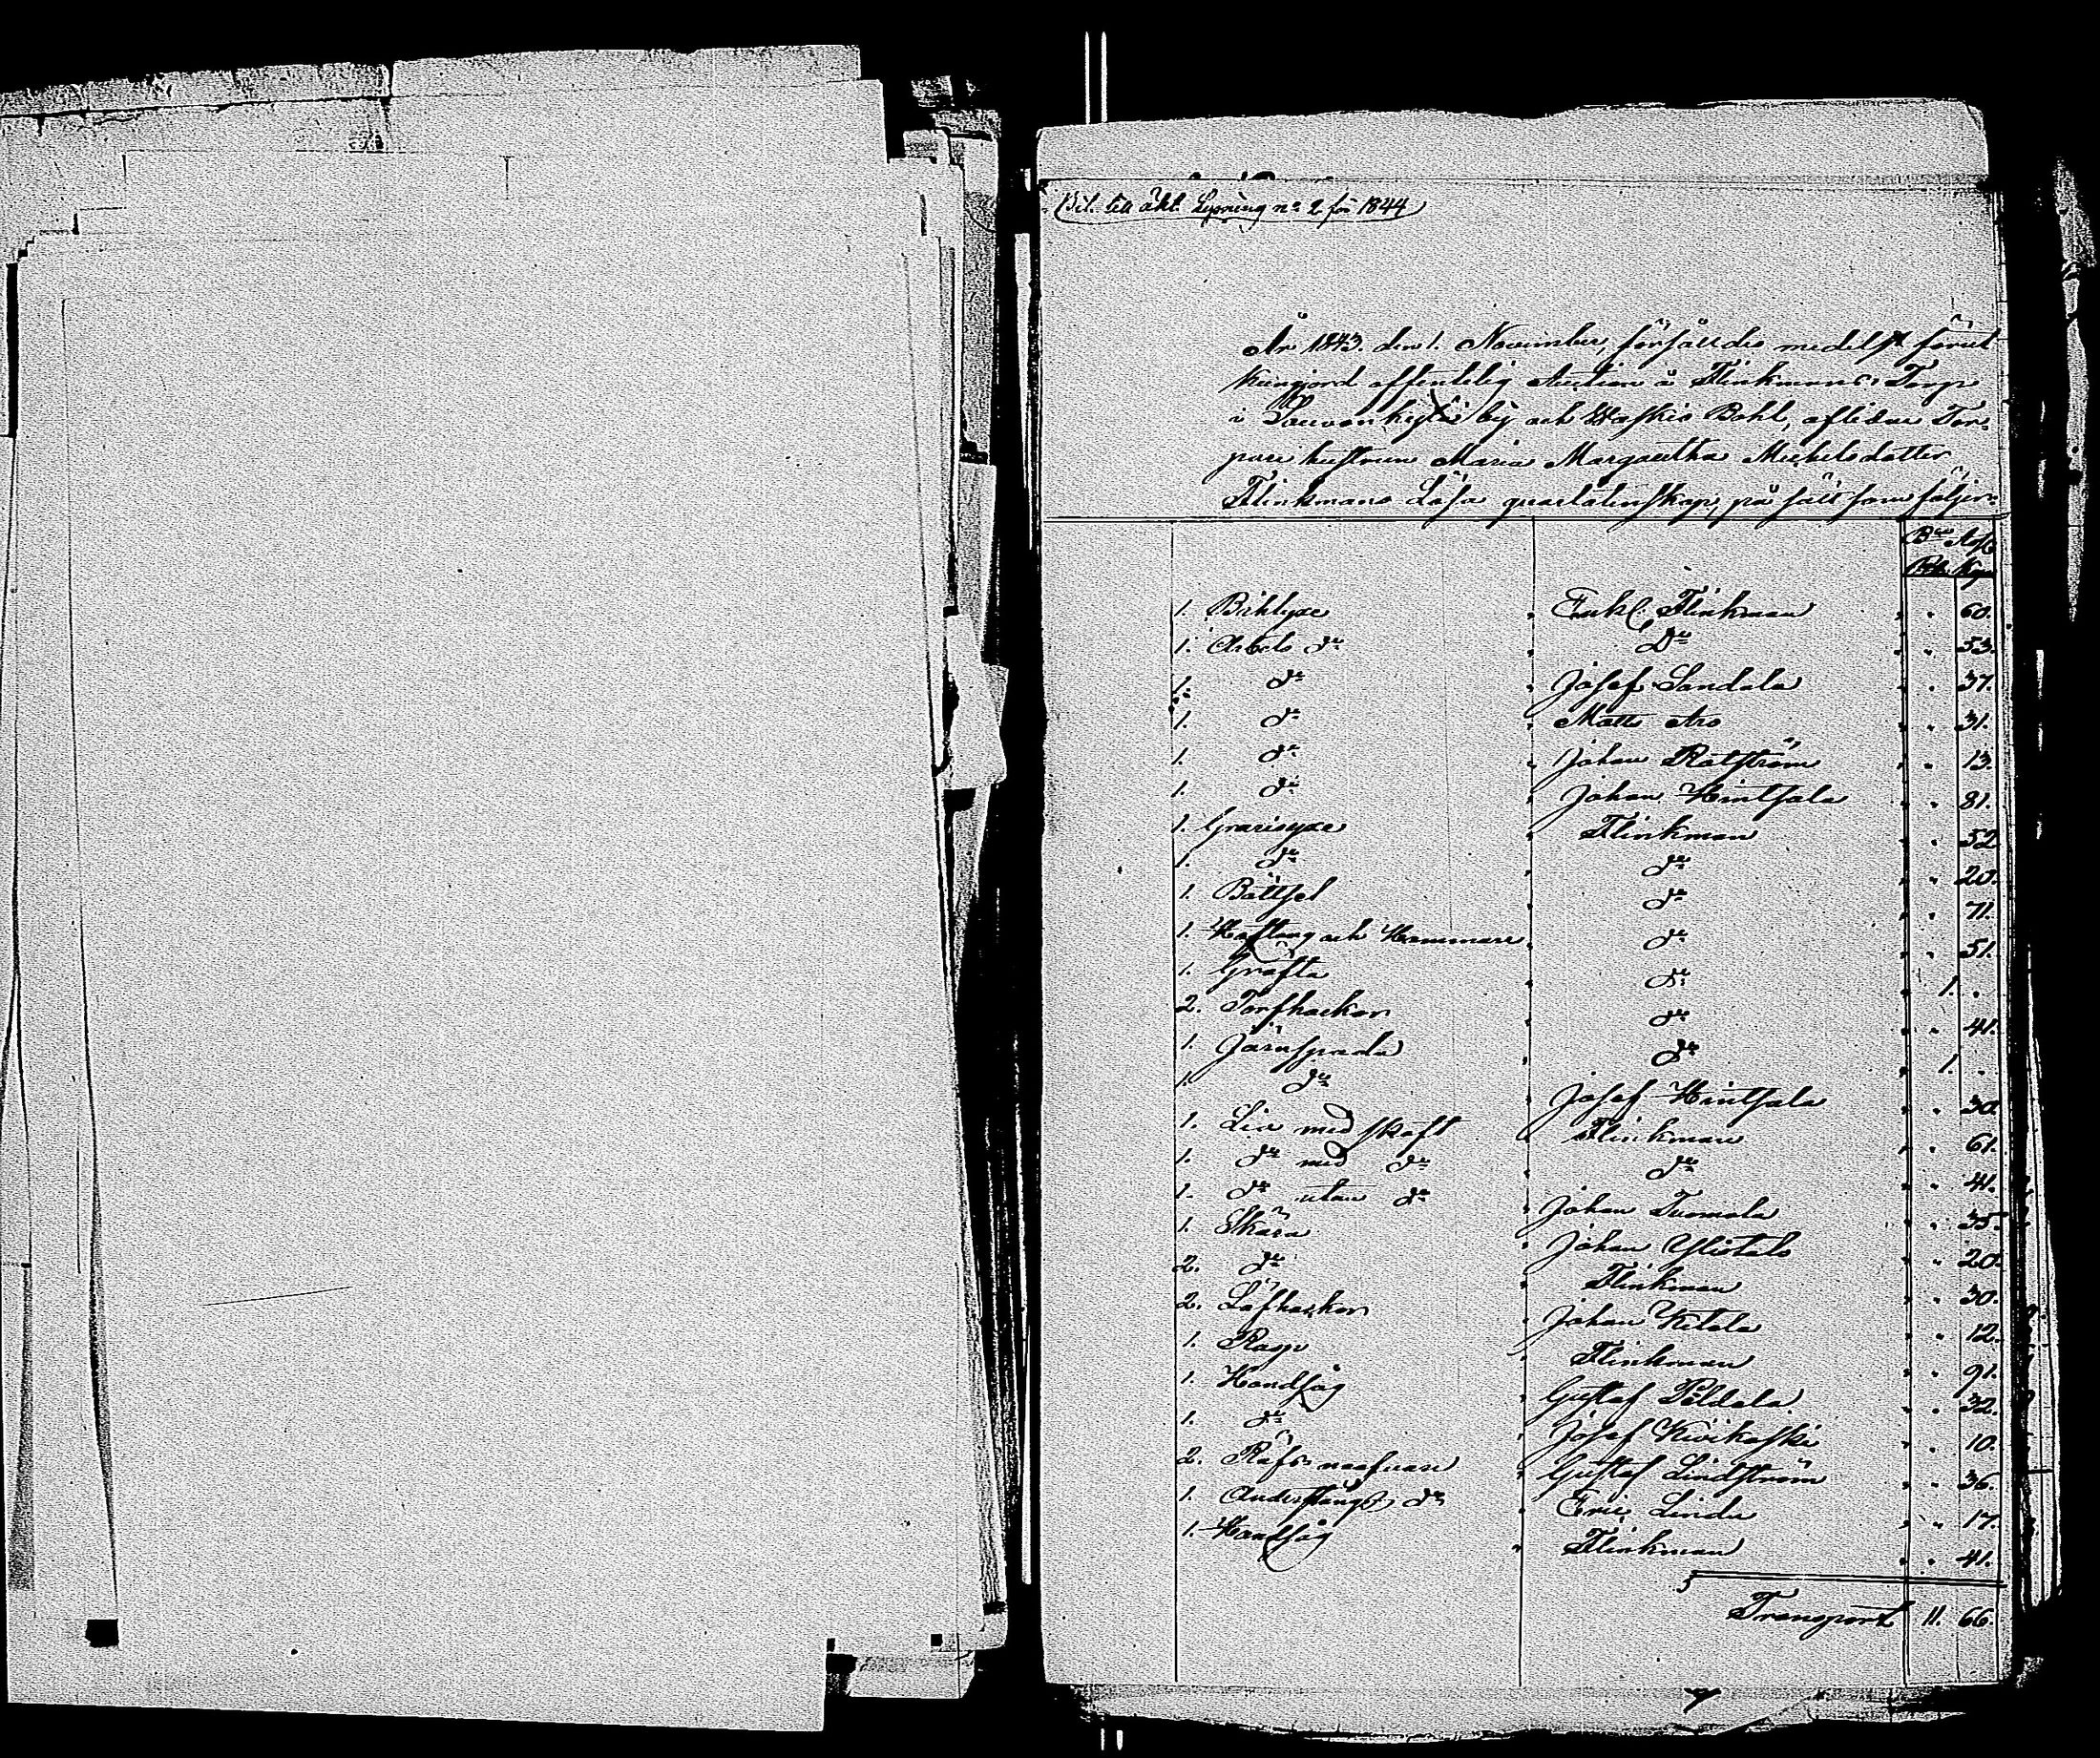 Bil. till åkl. Lysning no 2 för 1844
År 1843. den 1. November, försåldes medelst förut
kungjord offentelig Auction å Flinkmans Torp
i Sauvonkylä by och Haskio Bohl, aflidne Tor-
pare hustrun Maria Margaretha Michelsdotter
Flinkmans Lösa qvarlåtenskap, på sätt som följer:
Bco Ass
Rub. Kop.
1. Bihlyxe Enkl. Flinkman " 60.
1. Arbets do Do " 53.
1. do Josef Sandala " 37.
1. do Matts Aro " 31.
1. do Johan Rotström " 13.
1. do Johan Hintsala " 81.
1. Gravisyxe Flinkman " 52
1. do do " 20.
1. Båttsel do " 71.
1. Hoftång och Hammare do " 51.
1. Gräfta do 1. "
2. Torfhackor do " 41.
1. Järnspada do 1. "
1. do Josef Hintsala " 30
1. Lia med skaft Flinkman " 61.
1. do med do do " 41.
1. do utan do Johan Tuomola " 35.
1. Skära Johan Ylistalo " 20.
2. do Flinkman " 30.
2. Löfhackor Johan Ketola " 12.
1. Rasp Flinkman " 91.
1. Handsåg Gustaf Peldala " 32.
1. do Josef Kivikoski " 10.
2. Räfs nafvare Gustaf Lindström " 36.
1. Anderstångs do Eric Linda " 17.
1. Handsåg Flinkman " 41.
Transport 11. 66.